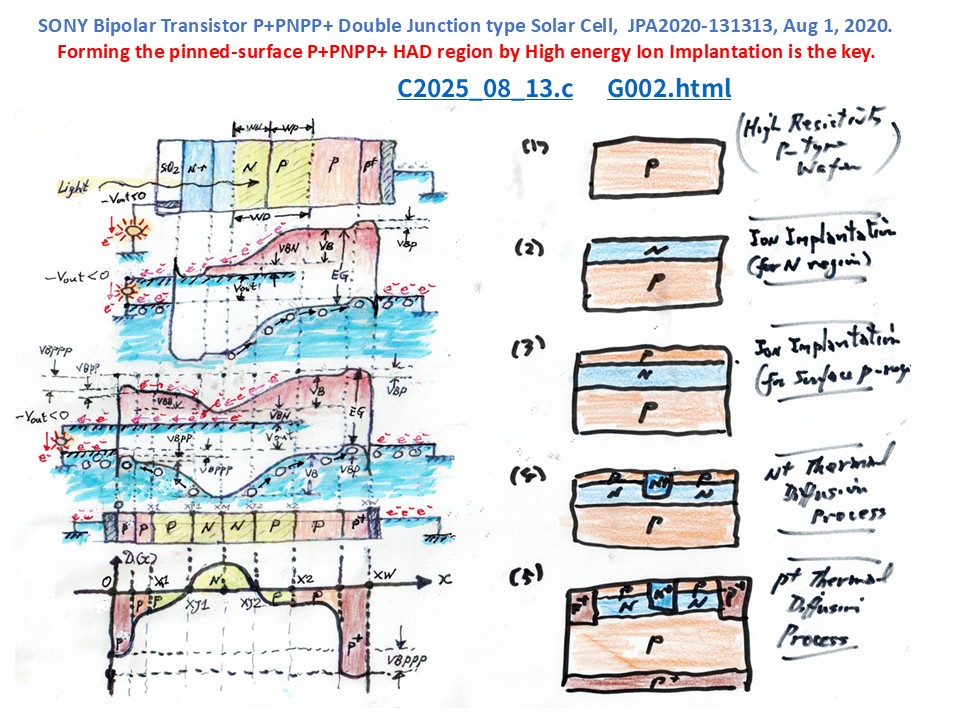 SONY Bipolar Transistor P+PNPP+ Double Junction type Solar Cell, JPA2020-131313, Aug 1, 2020.
Forming the pinned-surface P+PNPP+ HAD region by High energy Ion Implantation is the key.
C2025_08_13.c G002.html
WN WP
SiO2 N+ N P P P+
Light
-Vout<0
WD
e-
VBN VB VBP
-Vout<0
Vout EG
e- e- e- e-
VBPPP
VBPP
VBB VB VBP
-Vout<0
VBN EG
Vout
VBPP
VBPPP VB VBP
X1 XJ1 XM XJ2 X2 XW
P P P N N P P P+
D(x)
O X1 N X2 XW x
P P XJ1 XJ2 P P
P+ P+
VBPPP
(1)
P
(High Resistivity
P-type
Wafer)
(2)
N
P
Ion Implantation
(for N region)
(3)
P
N
P
Ion Implantation
(for Surface p-regi
(4)
P N+ P
N N
P
N+ Thermal
Diffusion
Process
(5)
P+ P N+ P P+
N N
P
P+
P+ Thermal
Diffusion
Process